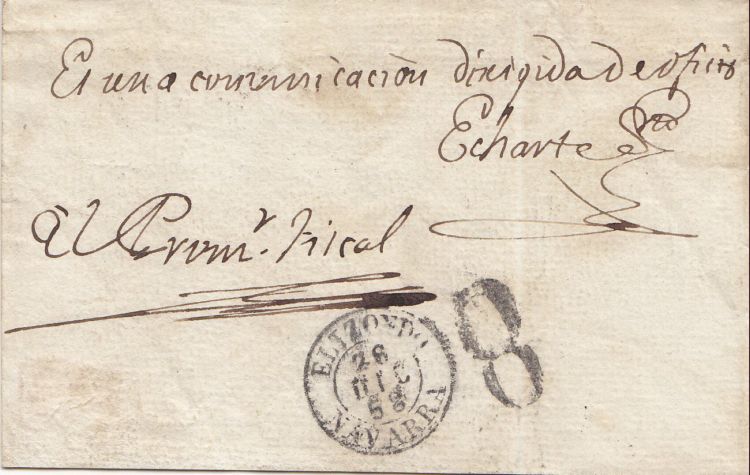 Es una comunicación dirigida de oficio
Echarte
El Promr. Fiscal
ELIZONDO
28
DIC
58
NAVARRA
8